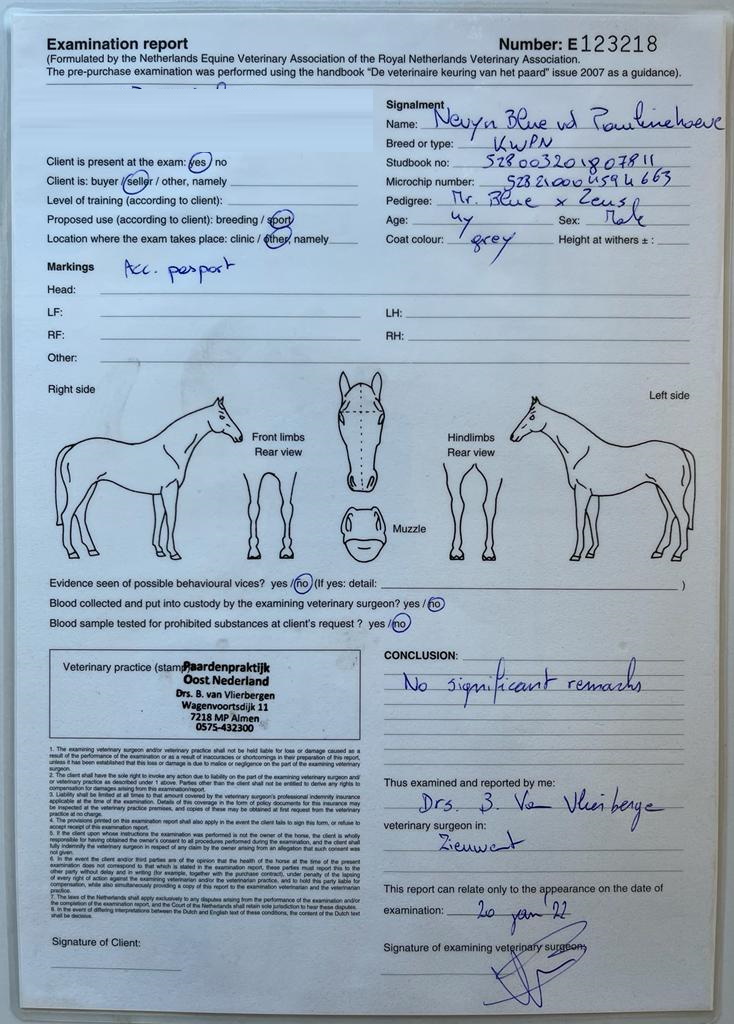 Examination report
Number: E123218
(Formulated by the Netherlands Equine Veterinary Association of the Royal Netherlands Veterinary Association.
The pre-purchase examination was performed using the handbook "De veterinaire keuring van het paard" issue 2007 as a guidance).
Signalment
Name: Nevyn Blue vd Paulinehoeve
Breed or type: KWPN
Studbook no: 528003201807811
Microchip number: 528210004594663
Pedigree: Mr. Blue x Zeus
Age: 4y Sex: Male
Coat colour: grey Height at withers ± :
Client is present at the exam: yes / no
Client is: buyer / seller / other, namely
Level of training (according to client):
Proposed use (according to client): breeding / sport
Location where the exam takes place: clinic / other, namely
Markings Acc. pasport
Head:
LF: LH:
RF: RH:
Other:
Right side
Left side
Front limbs
Rear view
Hindlimbs
Rear view
Muzzle
Evidence seen of possible behavioural vices? yes / no (If yes: detail: )
Blood collected and put into custody by the examining veterinary surgeon? yes / no
Blood sample tested for prohibited substances at client's request ? yes / no
Veterinary practice (stamp)
Paardenpraktijk
Oost Nederland
Drs. B. van Vlierbergen
Wagenvoortsdijk 11
7218 MP Almen
0575-432300
1. The examining veterinary surgeon and/or veterinary practice shall not be held liable for loss or damage caused as a
result of the performance of the examination or as a result of inaccuracies or shortcomings in their preparation of this report,
unless it has been established that this loss or damage is due to malice or negligence on the part of the examining veterinary
surgeon.
2. The client shall have the sole right to invoke any action due to liability on the part of the examining veterinary surgeon and/
or veterinary practice as described under 1 above. Parties other than the client shall not be entitled to derive any rights to
compensation for damages arising from this examination/report.
3. Liability shall be limited at all times to that amount covered by the veterinary surgeon's professional indemnity insurance
applicable at the time of the examination. Details of this coverage in the form of policy documents for this insurance may
be inspected at the veterinary practice premises, and copies of these may be obtained at first request from the veterinary
practice at no charge.
4. The provisions printed on this examination report shall also apply in the event the client fails to sign this form, or refuse to
accept receipt of this examination report.
5. If the client upon whose instructions the examination was performed is not the owner of the horse, the client is wholly
responsible for having obtained the owner's consent to all procedures performed during the examination, and the client shall
fully indemnify the veterinary surgeon in respect of any claim by the owner arising from an allegation that such consent was
not given.
6. In the event the client and/or third parties are of the opinion that the health of the horse at the time of the present
examination does not correspond to that which is stated in the examination report, these parties must report this to the
other party without delay and in writing (for example, together with the purchase contract), under penalty of the lapsing
of every right of action against the examining veterinarian and/or the veterinary practice, and to hold this party liable for
compensation, while also simultaneously providing a copy of this report to the examination veterinarian and the veterinarian
practice.
7. The laws of the Netherlands shall apply exclusively to any disputes arising from the performance of the examination and/or
the completion of the examination report, and the Court of the Netherlands shall retain sole jurisdiction to hear these disputes.
8. In the event of differing interpretations between the Dutch and English text of these conditions, the content of the Dutch text
shall be decisive.
Signature of Client:
CONCLUSION:
No significant remarks
Thus examined and reported by me:
Drs. B. Van Vlierberge
veterinary surgeon in:
Zieuwent
This report can relate only to the appearance on the date of
examination: 20 jan '22
Signature of examining veterinary surgeon: